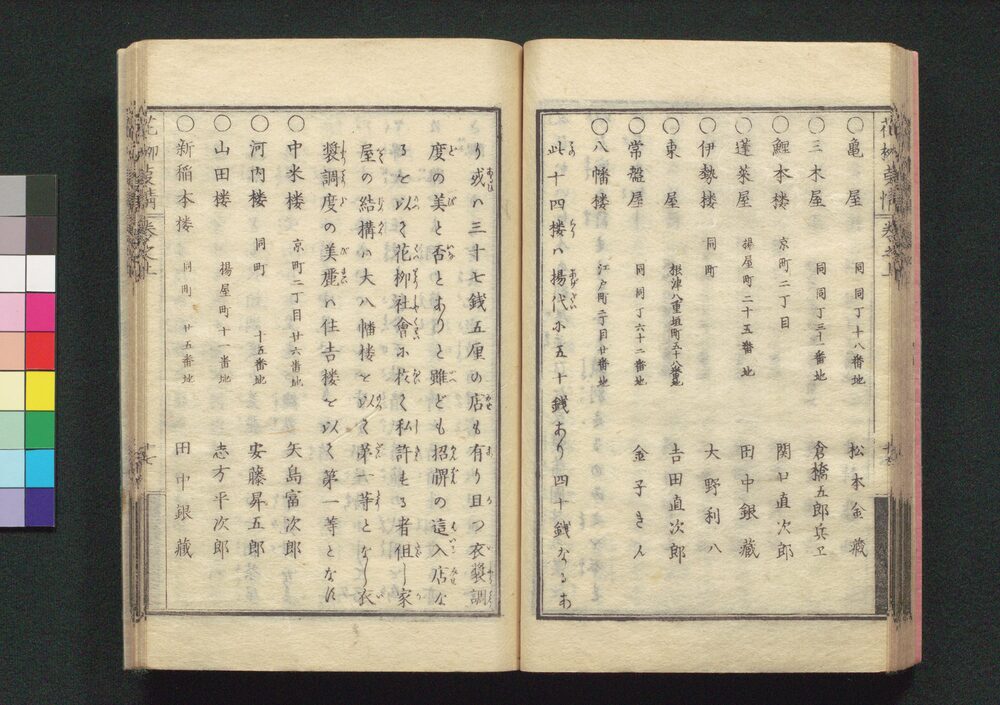 花柳事情 卷之上
〇亀屋 同同丁十八番地 松本金蔵
〇三木屋 同同丁三十一番地 倉橋五郎兵ヱ
〇鯉本楼 京町二丁目 関口直次郎
〇蓬莱屋 揚屋町二十五番地 田中銀蔵
〇伊勢楼 同町 大野利八
〇東屋 根津八重垣町五十八番地 吉田直次郎
〇常盤屋 同同丁六十二番地 金子きん
〇八幡楼 江戸町二丁目廿番地
此十四楼ハ揚代ホ五十銭あり四十銭なるあ
り或ハ三十七銭五厘の店も有り且つ衣裳調
度の美と否とありと雖ども招牌の這入店な
るを以て花柳社會ホ於て私許せる者但し家
屋の結構の大八幡楼を以て第一等となし衣
裳調度の美麗ハ住吉楼を以て第一等となす
〇中米楼 京町二丁目廿六番地 矢島富次郎
〇河内楼 同町 十五番地 安藤昇五郎
〇山田楼 揚屋町十一番地 志方平次郎
〇新稲本楼 同町 廿五番地 田中銀蔵
花柳事情 卷之上